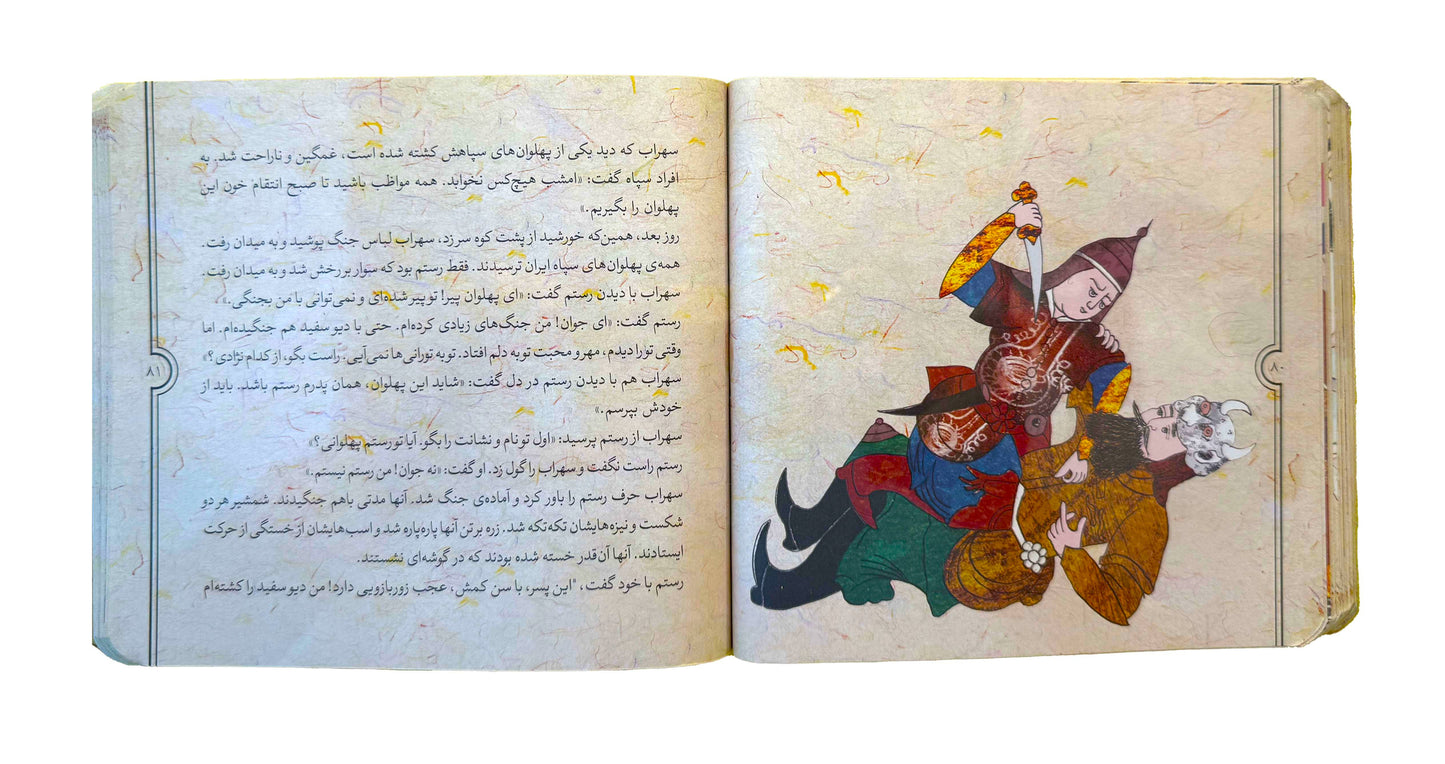 ۸۰
سهراب که دید یکی از پهلوان‌های سپاهش کشته شده است، غمگین و ناراحت شد. به
افراد سپاه گفت: «امشب هیچ‌کس نخوابد. همه مواظب باشید تا صبح انتقام خون این
پهلوان را بگیریم.»
روز بعد، همین‌که خورشید از پشت کوه سر زد، سهراب لباس جنگ پوشید و به میدان رفت.
همه‌ی پهلوان‌های سپاه ایران ترسیدند. فقط رستم بود که سوار بر رخش شد و به میدان رفت.
سهراب با دیدن رستم گفت: «ای پهلوان پیر! تو پیر شده‌ای و نمی‌توانی با من بجنگی.»
رستم گفت: «ای جوان! من جنگ‌های زیادی کرده‌ام. حتی با دیو سفید هم جنگیده‌ام. اما
وقتی تو را دیدم، مهر و محبت تو به دلم افتاد. تو به تورانی‌ها نمی‌آیی. راست بگو، از کدام نژادی؟»
سهراب هم با دیدن رستم در دل گفت: «شاید این پهلوان، همان پدرم رستم باشد. باید از
خودش بپرسم.»
سهراب از رستم پرسید: «اول تو نام و نشانت را بگو. آیا تو رستم پهلوانی؟»
رستم راست نگفت و سهراب را گول زد. او گفت: «نه جوان! من رستم نیستم.»
سهراب حرف رستم را باور کرد و آماده‌ی جنگ شد. آنها مدتی باهم جنگیدند. شمشیر هر دو
شکست و نیزه‌هایشان تکه‌تکه شد. زره بر تن آنها پاره‌پاره شد و اسب‌هایشان از خستگی از حرکت
ایستادند. آنها آن‌قدر خسته شده بودند که در گوشه‌ای نشستند.
رستم با خود گفت، "این پسر، با سن کمش، عجب زور بازویی دارد! من دیو سفید را کشته‌ام
۸۱